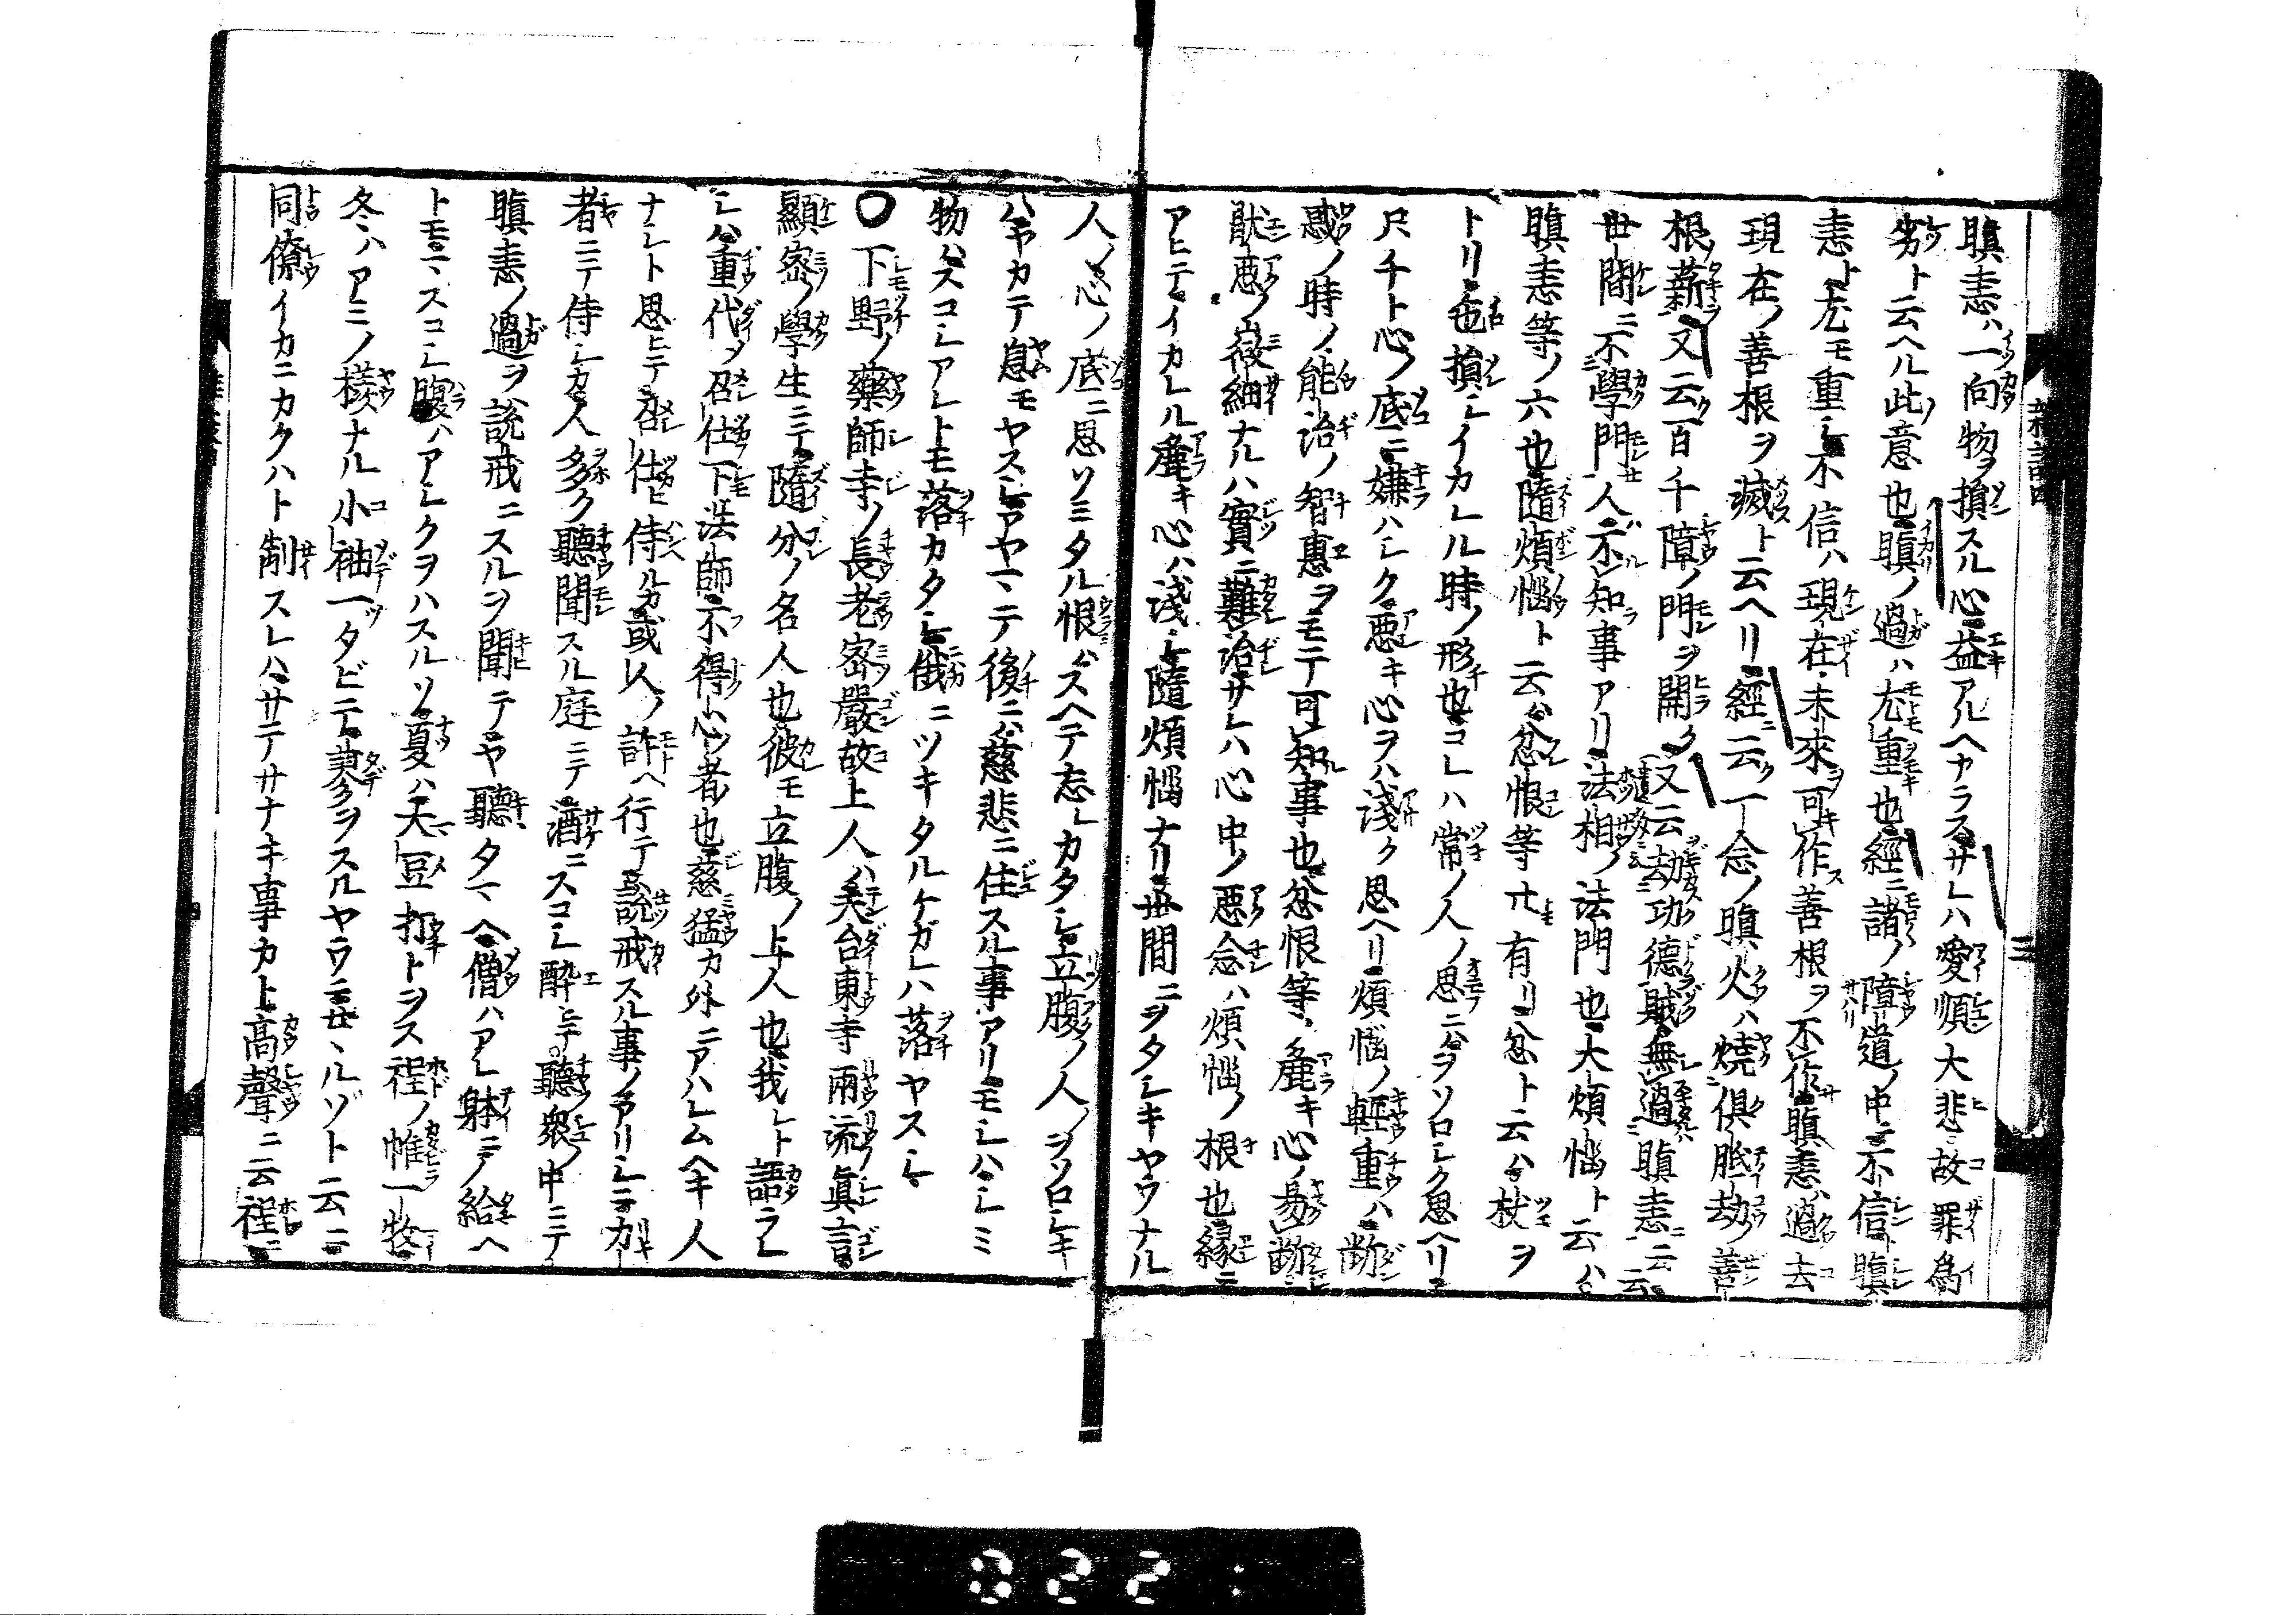 瞋恚ハ一向物ヲ損スル心益アルヘカラスサレハ愛煩大悲故罪為
劣ト云ヘル此意也瞋ノ過ハ尤重也經ニ諸ノ障道ノ中ニ不信瞋
恚ト尤モ重シ不信ハ現在未來可作善根ヲ不作瞋恚ハ過去
現在ノ善根ヲ滅ト云ヘリ經ニ云ク一念ノ瞋火ハ燒俱胝劫善
根ノ薪又云百千障ノ門ヲ開ク又云劫功德賊無過瞋恚ニ云云
世間ニ不學門人不知事アリ法相ノ法門也大煩惱ト云ハ
瞋恚等ノ六也隨煩惱ト云ハ忿恨等廿有リ忿ト云ハ杖ヲ
トリ也損シイカレル時ノ形也コレハ常ノ人ノ思ニハヲソロシク思ヘリ
只チト心ノ底ニ嫌ハシク惡キ心ヲハ淺ク思ヘリ煩惱ノ輕重ハ斷
惑ノ時ノ能治ノ智惠ヲモテ可知事也忿恨等ハ麁キ心ノ易斷
猒惡ノ微細ナルハ實ニ難治サレハ心中ノ惡念ハ煩惱ノ根也緣ニ
アヒテイカレル麁キ心ハ淺シ隨煩惱ナリ世間ニヲタシキヤウナル
人ノ心ノ底ニ思ソミタル恨ハスヘテ忘レカタシ立腹ノ人ノヲソロシキ
ハヤカテ息モヤスシアヤマテ後ニハ慈悲ニ住スル事アリモシハシミ
物ハスコシアレトモ落カタシ俄ニツキタルケカレハ落ヤスシ
〇下野ノ藥師寺ノ長老密嚴故上人ハ天台東寺兩流眞言
顯密ノ學生ニテ隨分ノ名人也彼モ立腹ノ上人也我レト語ラレ
シハ重代ヲ召仕下法師不得心ノ者也慈猛カ外ニアハレムヘキ人
ナシト思ヒテ召仕ヒ侍ルカ或人ノ許ヘ行テ說戒スル事ノアリシニカ
者ニテ侍シカ人多ク聽聞スル庭ニテ酒ニスコシ醉テ聽衆ノ中ニテ
瞋恚ノ過ヲ說戒ニスルヲ聞テヤ聽タマヘ僧ハアレ躰ニテ給ヘ
トモスコシ腹ハアシクヲハスルソ夏ハ大豆打トヲス程ノ帷一牧
冬ハアミノ樣ナル小袖一タビニテ蓼クヲスルヤウニセヽルゾト云ニ
同僚イカニカクハト制スレハサテサナキ事カト高聲ニ云程ニ